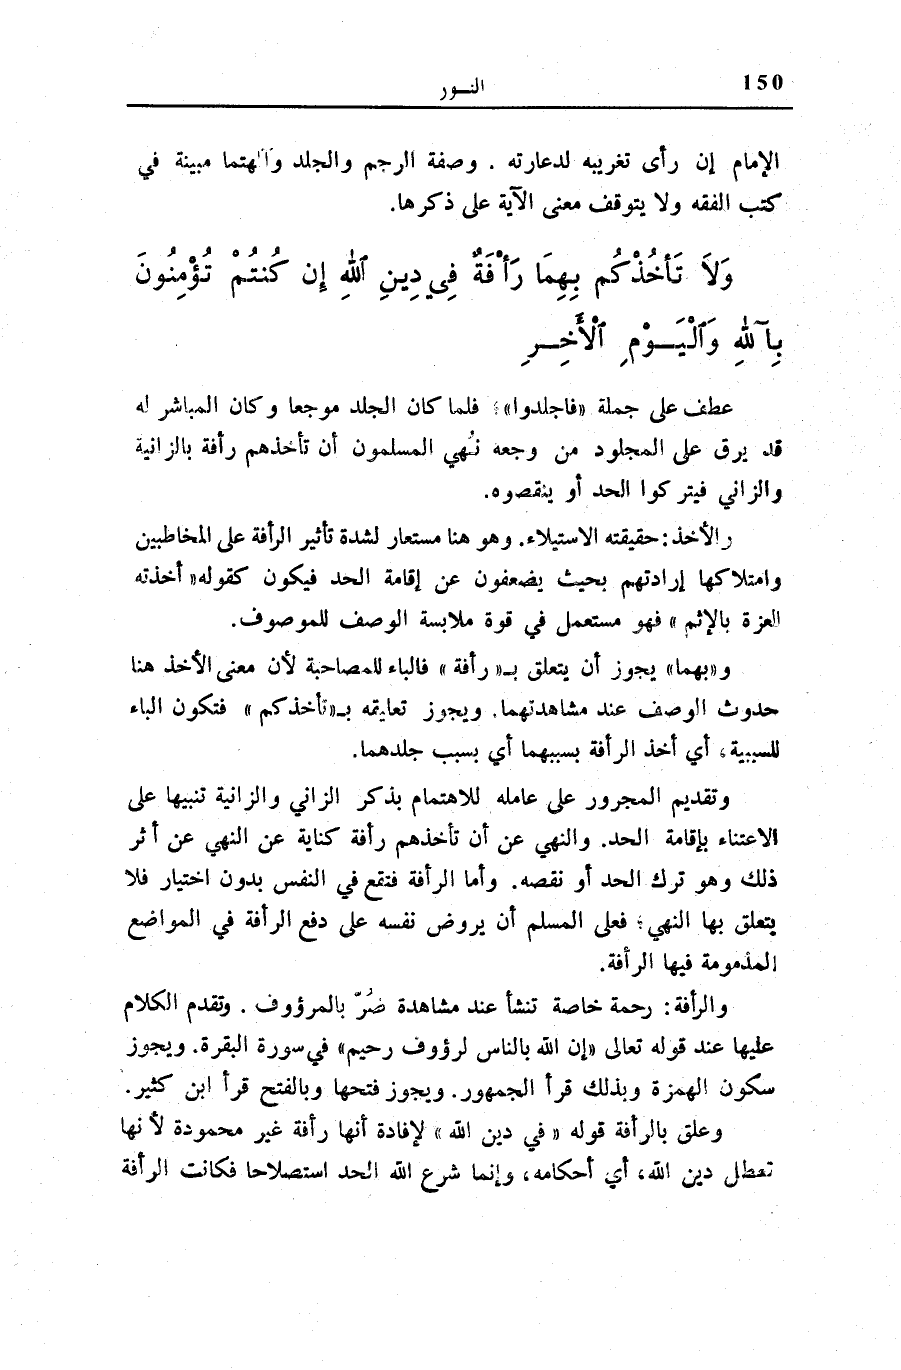 150
النـور
الإمام إن رأى تغريبه لدعارته . وصفة الرجم والجلد وآلهتما مبينة في
كتب الفقه ولا يتوقف معنى الآية على ذكرها.
وَلَا تَأْخُذْكُم بِهِمَا رَأْفَةٌ فِي دِينِ ٱللَّهِ إِن كُنتُمْ تُؤْمِنُونَ
بِٱللَّهِ وَٱلْيَـــوْمِ ٱلْأَخِـــرِ
عطف على جملة «فاجلدوا»؛ فلما كان الجلد موجعا وكان المباشر له
قد يرق على المجلود من وجعه نُهي المسلمون أن تأخذهم رأفة بالزانية
والزاني فيتركوا الحد أو ينقصوه.
والأخذ : حقيقته الاستيلاء. وهو هنا مستعار لشدة تأثير الرأفة على المخاطبين
وامتلاكها إرادتهم بحيث يضعفون عن إقامة الحد فيكون كقوله« أخذته
العزة بالإثم » فهو مستعمل في قوة ملابسة الوصف للموصوف.
و«بهما» يجوز أن يتعلق بـ« رأفة » فالباء للمصاحبة لأن معنى الأخذ هنا
حدوث الوصف عند مشاهدتهما. ويجوز تعليقه بـ«تأخذكم » فتكون الباء
للسببية، أي أخذ الرأفة بسببهما أي بسبب جلدهما.
وتقديم المجرور على عامله للاهتمام بذكر الزاني والزانية تنبيها على
الاعتناء بإقامة الحد. والنهي عن أن تأخذهم رأفة كناية عن النهي عن أثر
ذلك وهو ترك الحد أو نقصه. وأما الرأفة فتقع في النفس بدون اختيار فلا
يتعلق بها النهي؛ فعلى المسلم أن يروض نفسه على دفع الرأفة في المواضع
المذمومة فيها الرأفة.
والرأفة : رحمة خاصة تنشأ عند مشاهدة ضُرّ بالمرؤوف . وتقدم الكلام
عليها عند قوله تعالى «إن الله بالناس لرؤوف رحيم» في سورة البقرة. ويجوز
سكون الهمزة وبذلك قرأ الجمهور. ويجوز فتحها وبالفتح قرأ ابن كثير.
وعلق بالرأفة قوله « في دين الله » لإفادة أنها رأفة غير محمودة لأنها
تعطل دين الله، أي أحكامه، وإنما شرع الله الحد استصلاحا فكانت الرأفة